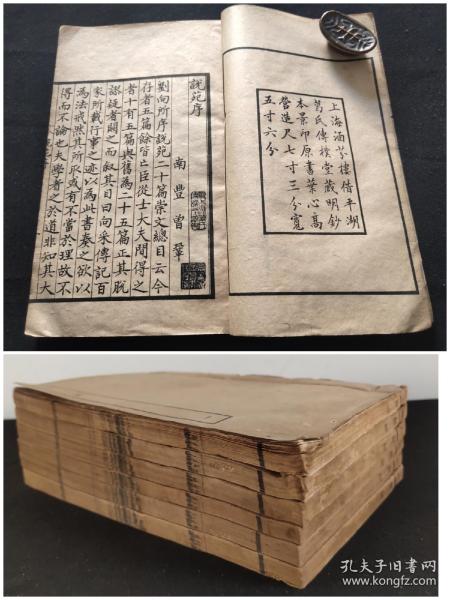 上海涵芬樓借平湖
葛氏傳樸堂藏明鈔
本景印原書葉心高
營造尺七寸三分寬
五寸六分
說苑序
南豐曾鞏
劉向所序說苑二十篇崇文總目云今
存者五篇餘皆亡臣從士大夫間得之
者十有五篇與舊為二十五篇正其脫
謬疑者闕之而叙其目曰向采傳記百
家所載行事之迹以為此書奏之欲以
為法戒然其所取或有不當於理故不
得而不論也夫學者之於道非知其大
孔夫子旧书网
www.kongfz.com